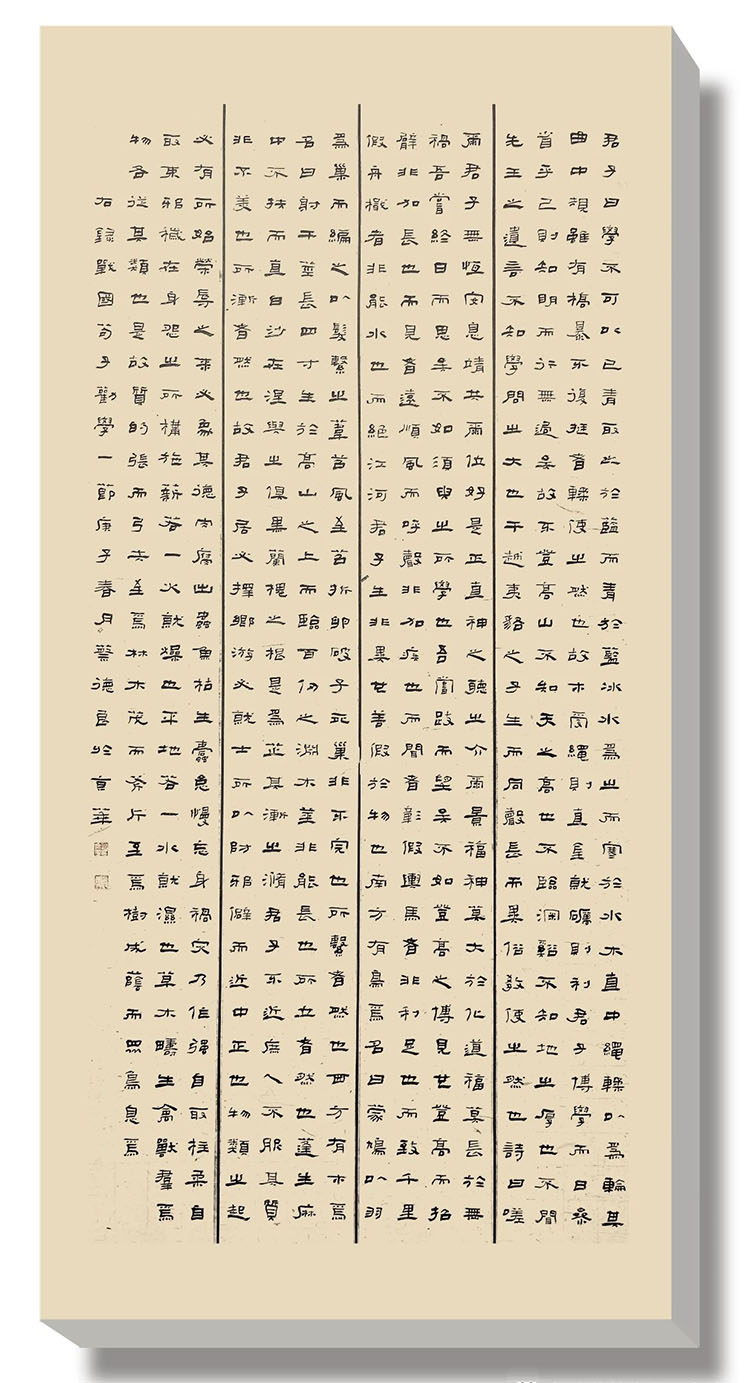 君子曰學不可以已青取之於藍而青於藍冰水為之而寒於水木直中繩輮以為輪其
曲中規雖有槁暴不復挺者輮使之然也故木受繩則直金就礪則利君子博學而日參
省乎己則知明而行無過矣故不登高山不知天之高也不臨深谿不知地之厚也不聞
先王之遺言不知學問之大也干越夷貉之子生而同聲長而異俗教使之然也詩曰嗟
爾君子無恆安息靖共爾位好是正直神之聽之介爾景福神莫大於化道福莫長於無
禍吾嘗終日而思矣不如須臾之所學也吾嘗跂而望矣不如登高之博見也登高而招
臂非加長也而見者遠順風而呼聲非加疾也而聞者彰假輿馬者非利足也而致千里
假舟檝者非能水也而絕江河君子生非異也善假於物也南方有鳥焉名曰蒙鳩以羽
為巢而編之以髮繫之葦苕風至苕折卵破子死巢非不完也所繫者然也西方有木焉
名曰射干莖長四寸生於高山之上而臨百仞之淵木莖非能長也所立者然也蓬生麻
中不扶而直白沙在涅與之俱黑蘭槐之根是為芷其漸之滫君子不近庶人不服其質
非不美也所漸者然也故君子居必擇鄉游必就士所以防邪僻而近中正也物類之起
必有所始榮辱之來必象其德肉腐出蟲魚枯生蠹怠慢忘身禍災乃作強自取柱柔自
取束邪穢在身怨之所構施薪若一火就燥也平地若一水就濕也草木疇生禽獸羣焉
物各從其類也是故質的張而弓矢至焉林木茂而斧斤至焉樹成蔭而眾鳥息焉
右錄戰國荀子勸學一節庚子春月黎德良於育華